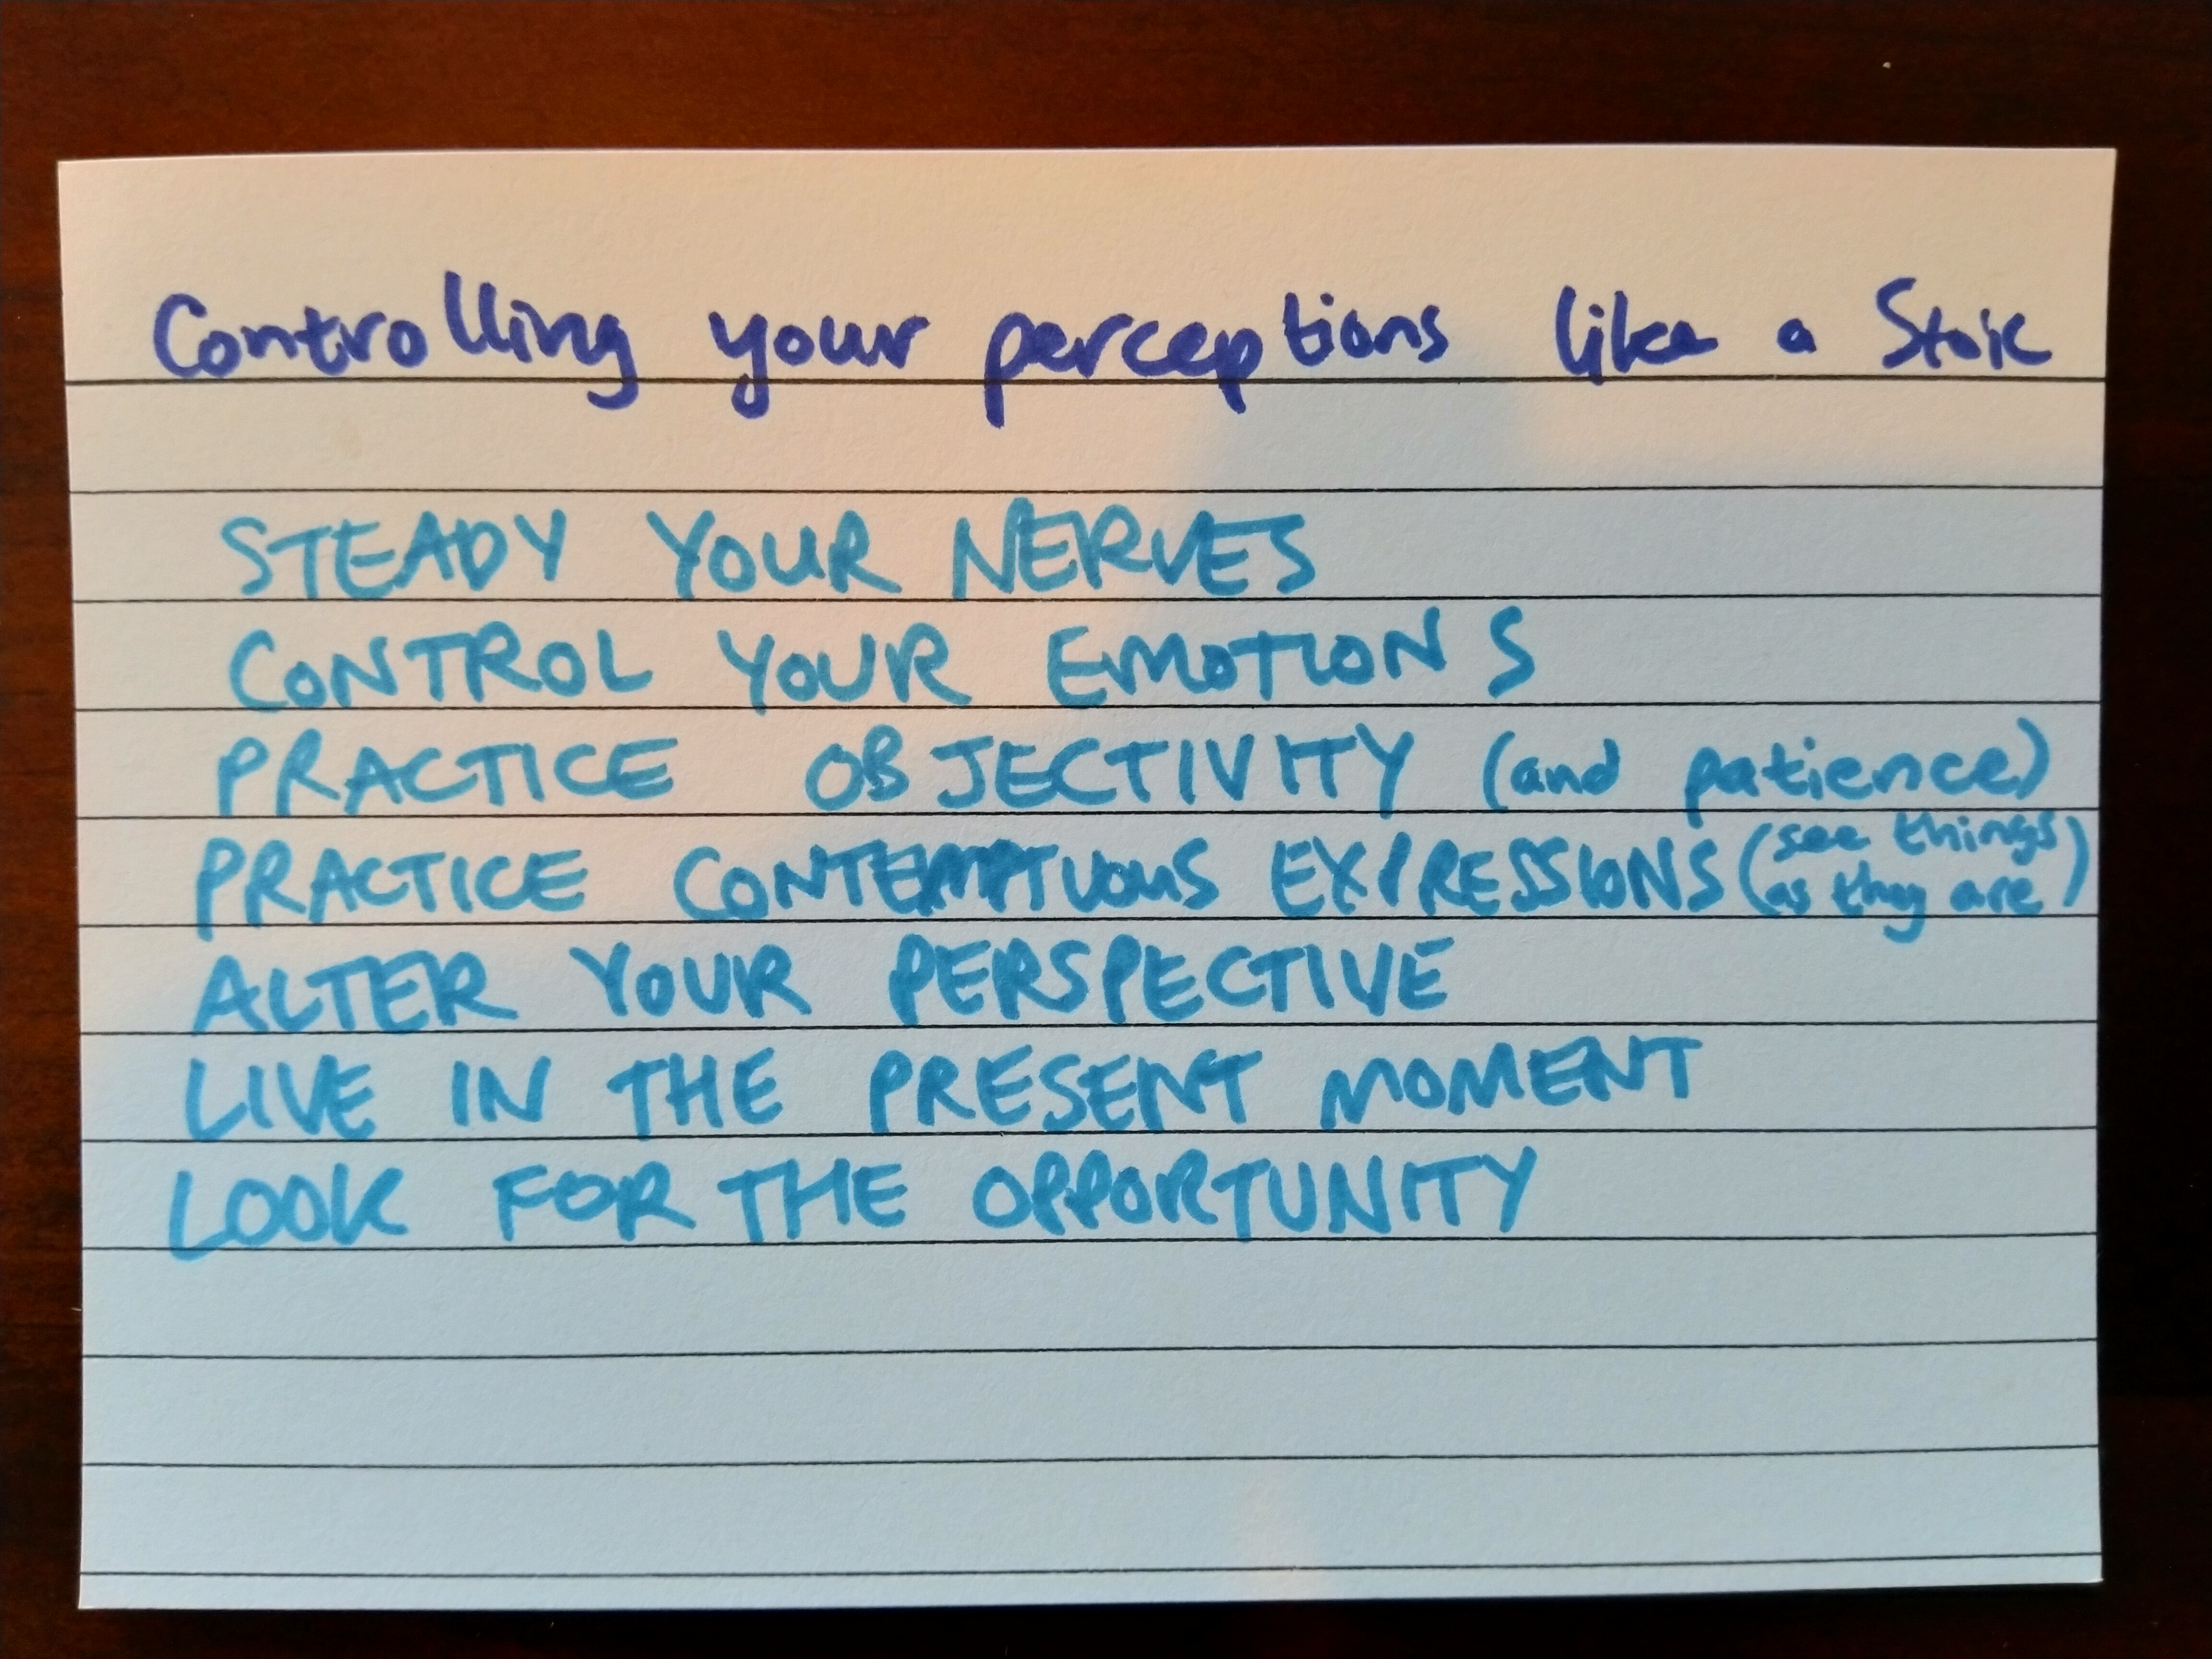 Controlling your perceptions like a Stoic
STEADY YOUR NERVES
CONTROL YOUR EMOTIONS
PRACTICE OBJECTIVITY (and patience)
PRACTICE CONTEMPTUOUS EXPRESSIONS (see things)
(as they are)
ALTER YOUR PERSPECTIVE
LIVE IN THE PRESENT MOMENT
LOOK FOR THE OPPORTUNITY